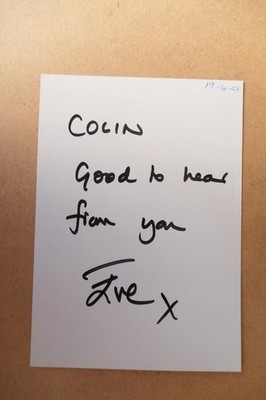 19-4-01
COLIN
Good to hear
from you
Eve x